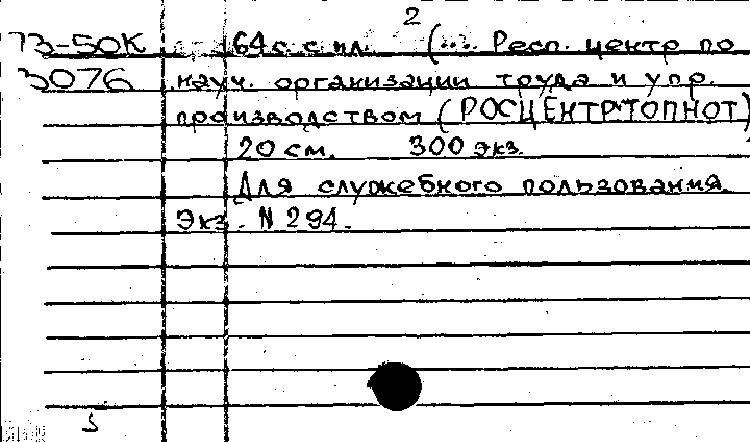 2
73-50К 64 с. с ил. (... Респ. центр по
3076 науч. организации труда и упр.
производством (РОСЦЕНТРТОПНОТ)
20 см. 300 экз.
Для служебного пользования.
Экз. N 294.